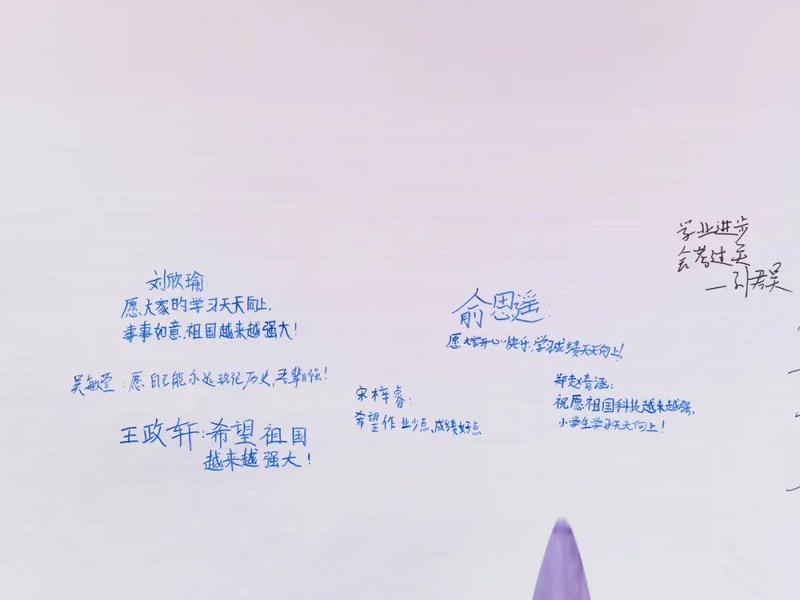 刘欣瑜:
愿大家的学习天天向上,
事事如意,祖国越来越强大!
吴敏萱:愿自己能永远铭记历史,吾辈自强!
王政轩:希望祖国
越来越强大!
宋梓睿:
希望作业少点、成绩好点
俞思遥:
愿大家开心快乐,学习成绩天天向上!
郑赵音涵:
祝愿祖国科技越来越强,
小学生学习天天向上!
学业进步
会考过关